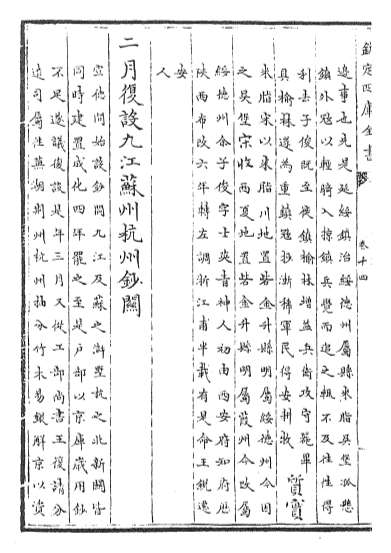 欽定四庫全書
卷十四
邊事也先是延綏鎮治綏德州屬縣米脂吳堡孤懸
鎮外寇以輕騎入掠鎮兵覺而追之輒不及往往得
利去子俊既至徙鎮榆林增益兵衛攻守器畢
具榆林遂為重鎮寇抄漸稀軍民得安耕牧
質實
米脂宋以米脂川地置砦金升縣明屬綏德州今因
之吳堡宋收西夏地置砦金升縣明屬葭州今改屬
綏德州余子俊字士英青神人初由西安府知府歷
陝西布政六年轉左調浙江甫半載有是命王銳遷
安
人
二月復設九江蘇州杭州鈔關
宣德間始設鈔關九江及蘇之滸墅杭之北新關皆
同時建置成化四年罷之至是戶部以京庫歲用鈔
不足遂議復設是年三月又從工部尚書王復請分
遣司屬往蕪湖荊州杭州抽分竹木易銀解京以資